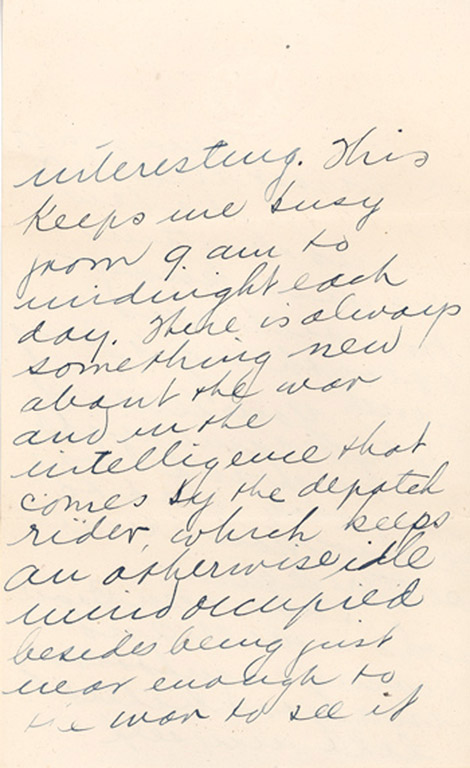 interesting. This
keeps me busy
from 9 am to
midnight each
day. There is always
something new
about the war
and in the
intelligence that
comes by the depatch
rider, which keeps
an otherwise idle
mind occupied
besides being just
near enough to
the war to see it